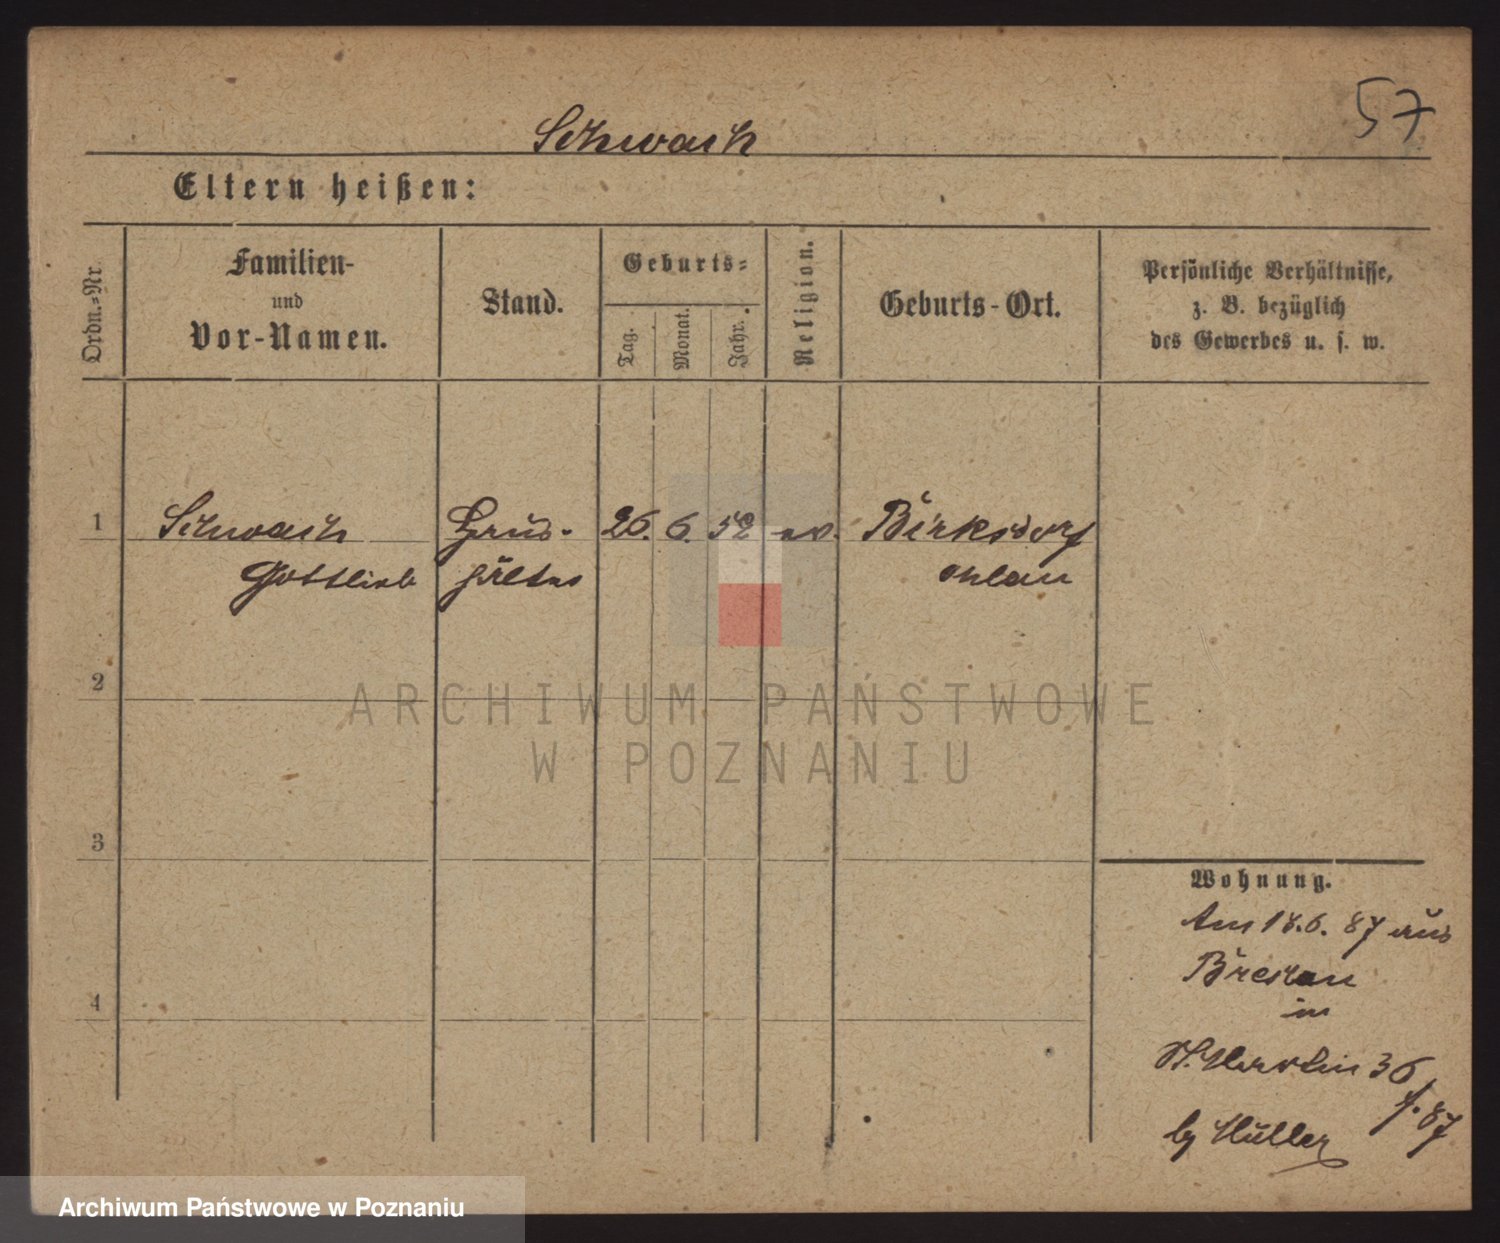 57
Schwach
Eltern heißen:
Ordn.=Nr.
Familien-
und
Vor-Namen.
Stand.
Geburts=
Tag.
Monat.
Jahr.
Religion.
Geburts-Ort.
Persönliche Verhältnisse,
z. B. bezüglich
des Gewerbes u. s. w.
1
Schwach
Gottlieb
Haus-
hälter
26. 6. 52
ev.
Birksdorf
Ohlau
2
ARCHIWUM PAŃSTWOWE
W POZNANIU
3
4
Wohnung.
Am 18.6. 87 aus
Breslau
in
St. Martin 36
f. 87
by Müller
Archiwum Państwowe w Poznaniu